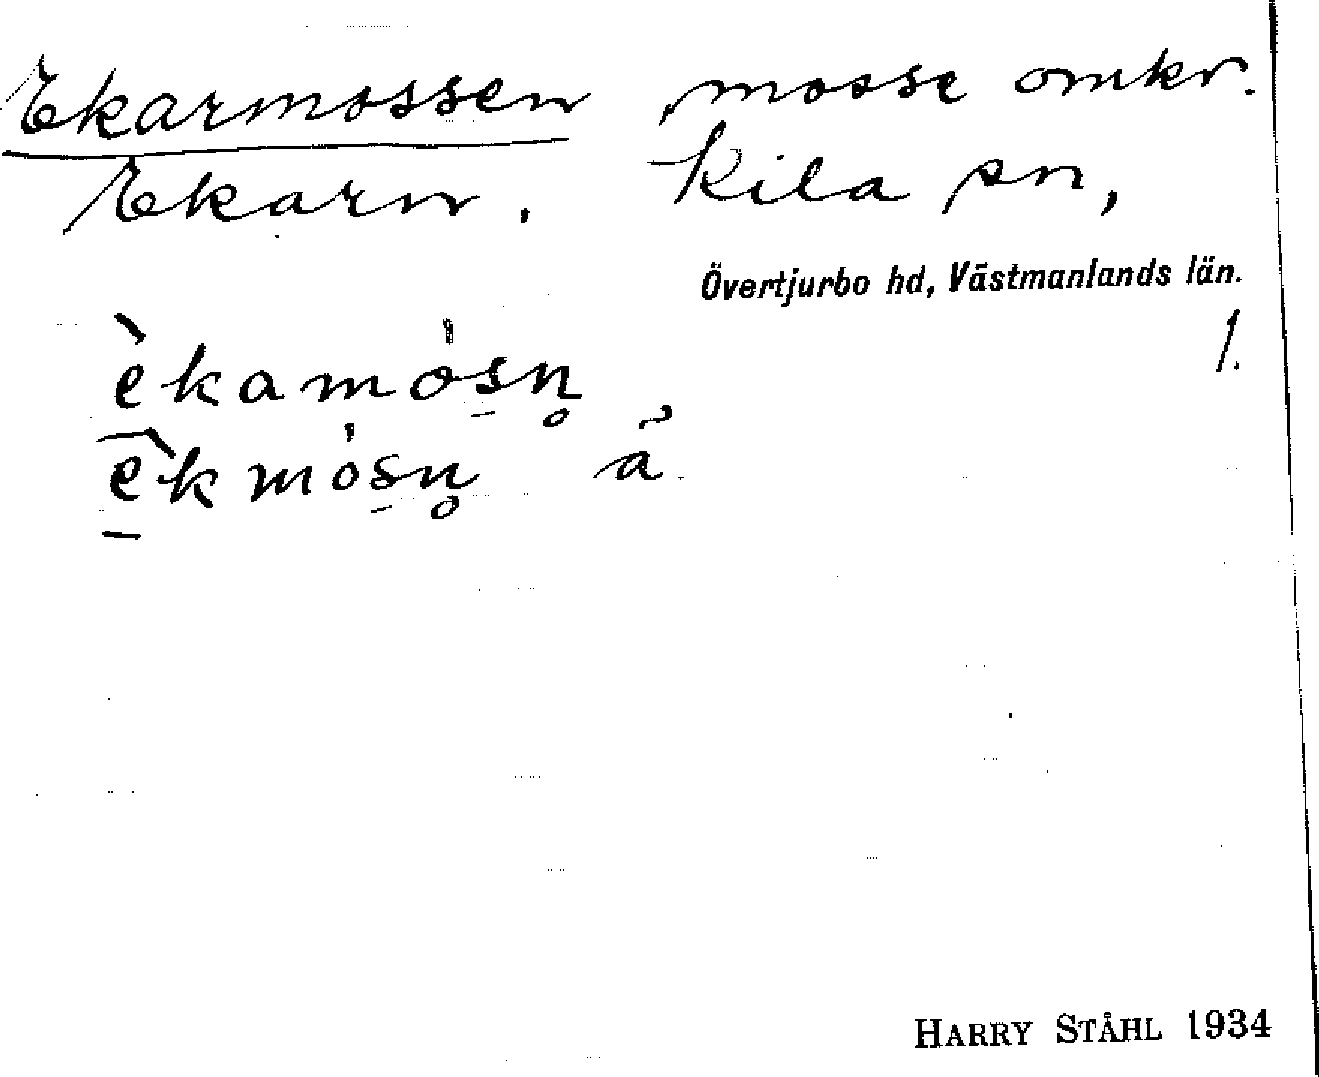 Ekarmossen, mosse omkr.
Ekarn. Kila sn,
Övertjurbo hd, Västmanlands län.
1.
èkamósn̥
èkmósn̥ å
HARRY STÅHL 1934